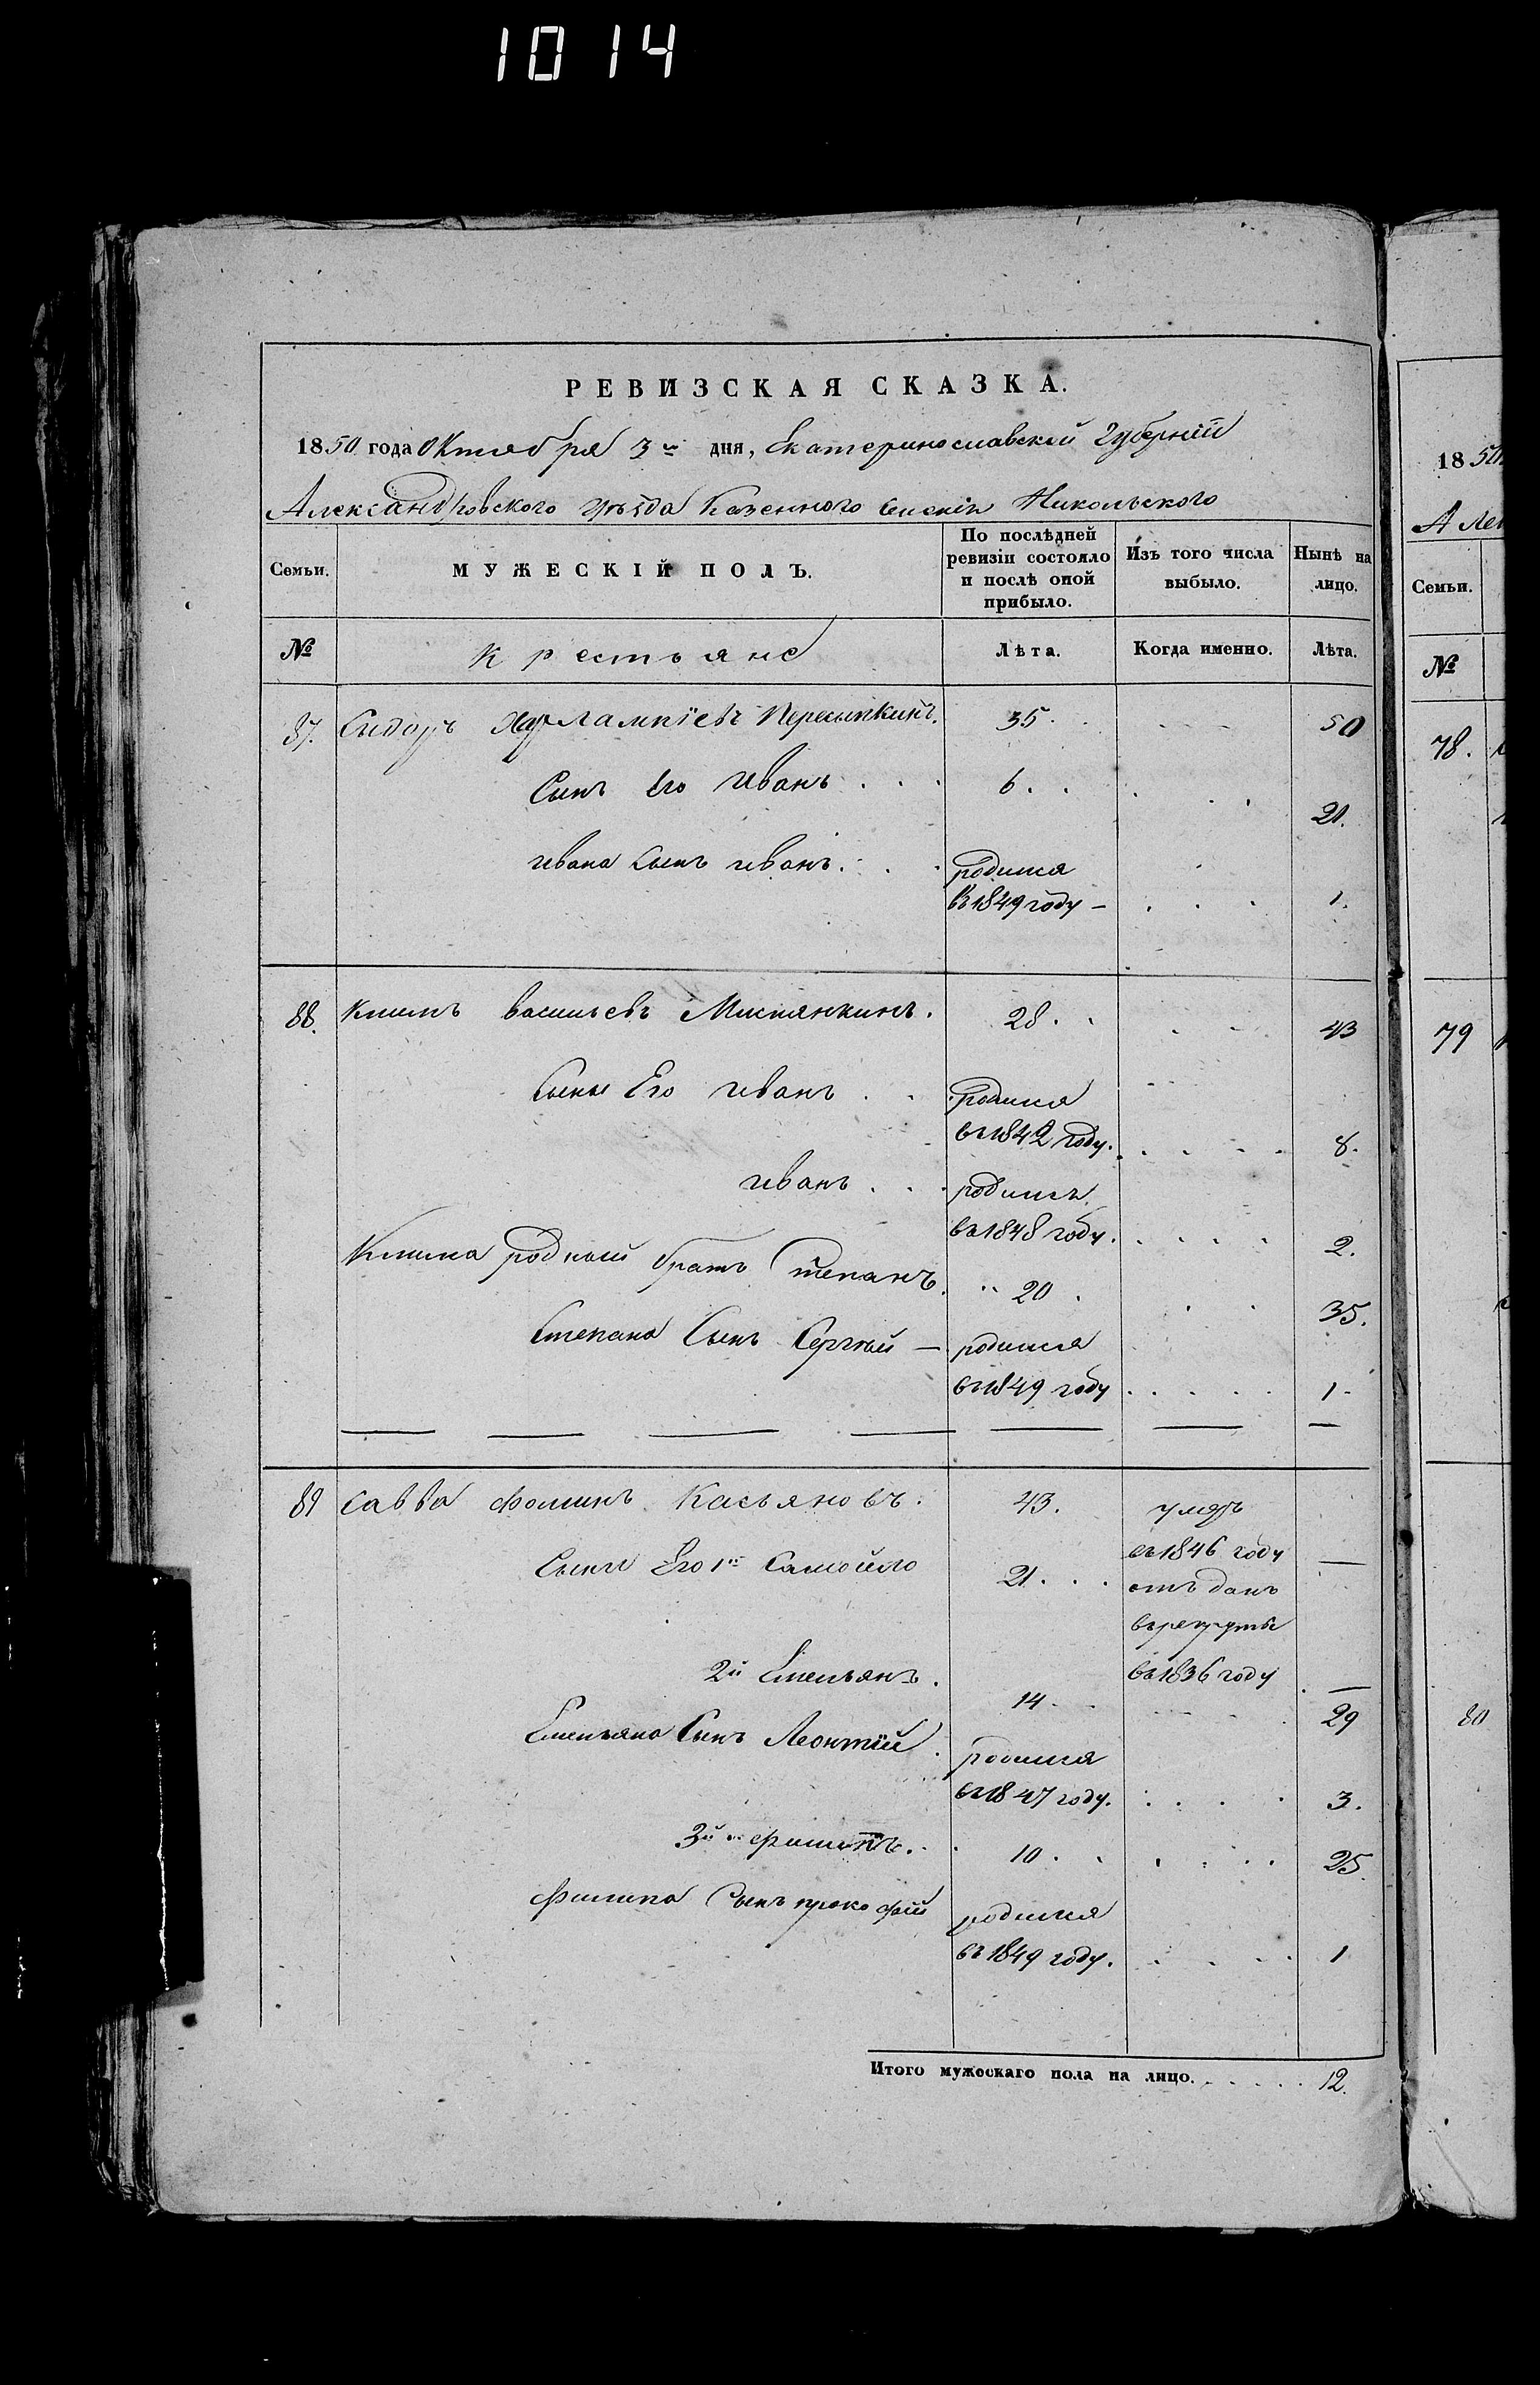 1014
РЕВИЗСКАЯ СКАЗКА.
1850 года Октября 3го дня, Екатеринославской Губернiи
Александровского уѣзда Казенного Никольского
Семьи.
МУЖЕСКІЙ ПОЛЪ.
По послѣдней ревизіи состояло и послѣ оной прибыло.
Изъ того числа выбыло.
Нынѣ на лицо.
№
Крестьяне
Лѣта.
Когда именно.
Лѣта.
87. Сидоръ Харлампiевъ Пересыпкинъ. 35. 50
Сынъ Его Иванъ 6. 21.
Ивана Сынъ Иванъ. родился
въ 1849 году – 1.
88. Климъ Васильевъ 28. 43
Сыны Его Иванъ родился
въ 1842 году. 8.
Иванъ родился
въ 1848 году. 2.
Клима родный братъ Степанъ. 20. 35.
Степана Сынъ Сергѣй — родился
въ 1849 году 1
89 Савва Фоминъ Касьяновъ. 43. умеръ
въ 1846 году —
Сыны Его 1й Самойло 21. отъ данъ
въ рекруты
въ 1836 году —
2й Емельянъ. 14. 29
Емельяна Сынъ Леонтiй родился
въ 1847 году. 3.
3й Филипъ. 10. 25.
Филипа Сынъ прокофiй родился
въ 1849 году. 1
Итого мужескаго пола на лицо. 12.
1850
Семьи.
№
78.
79
80